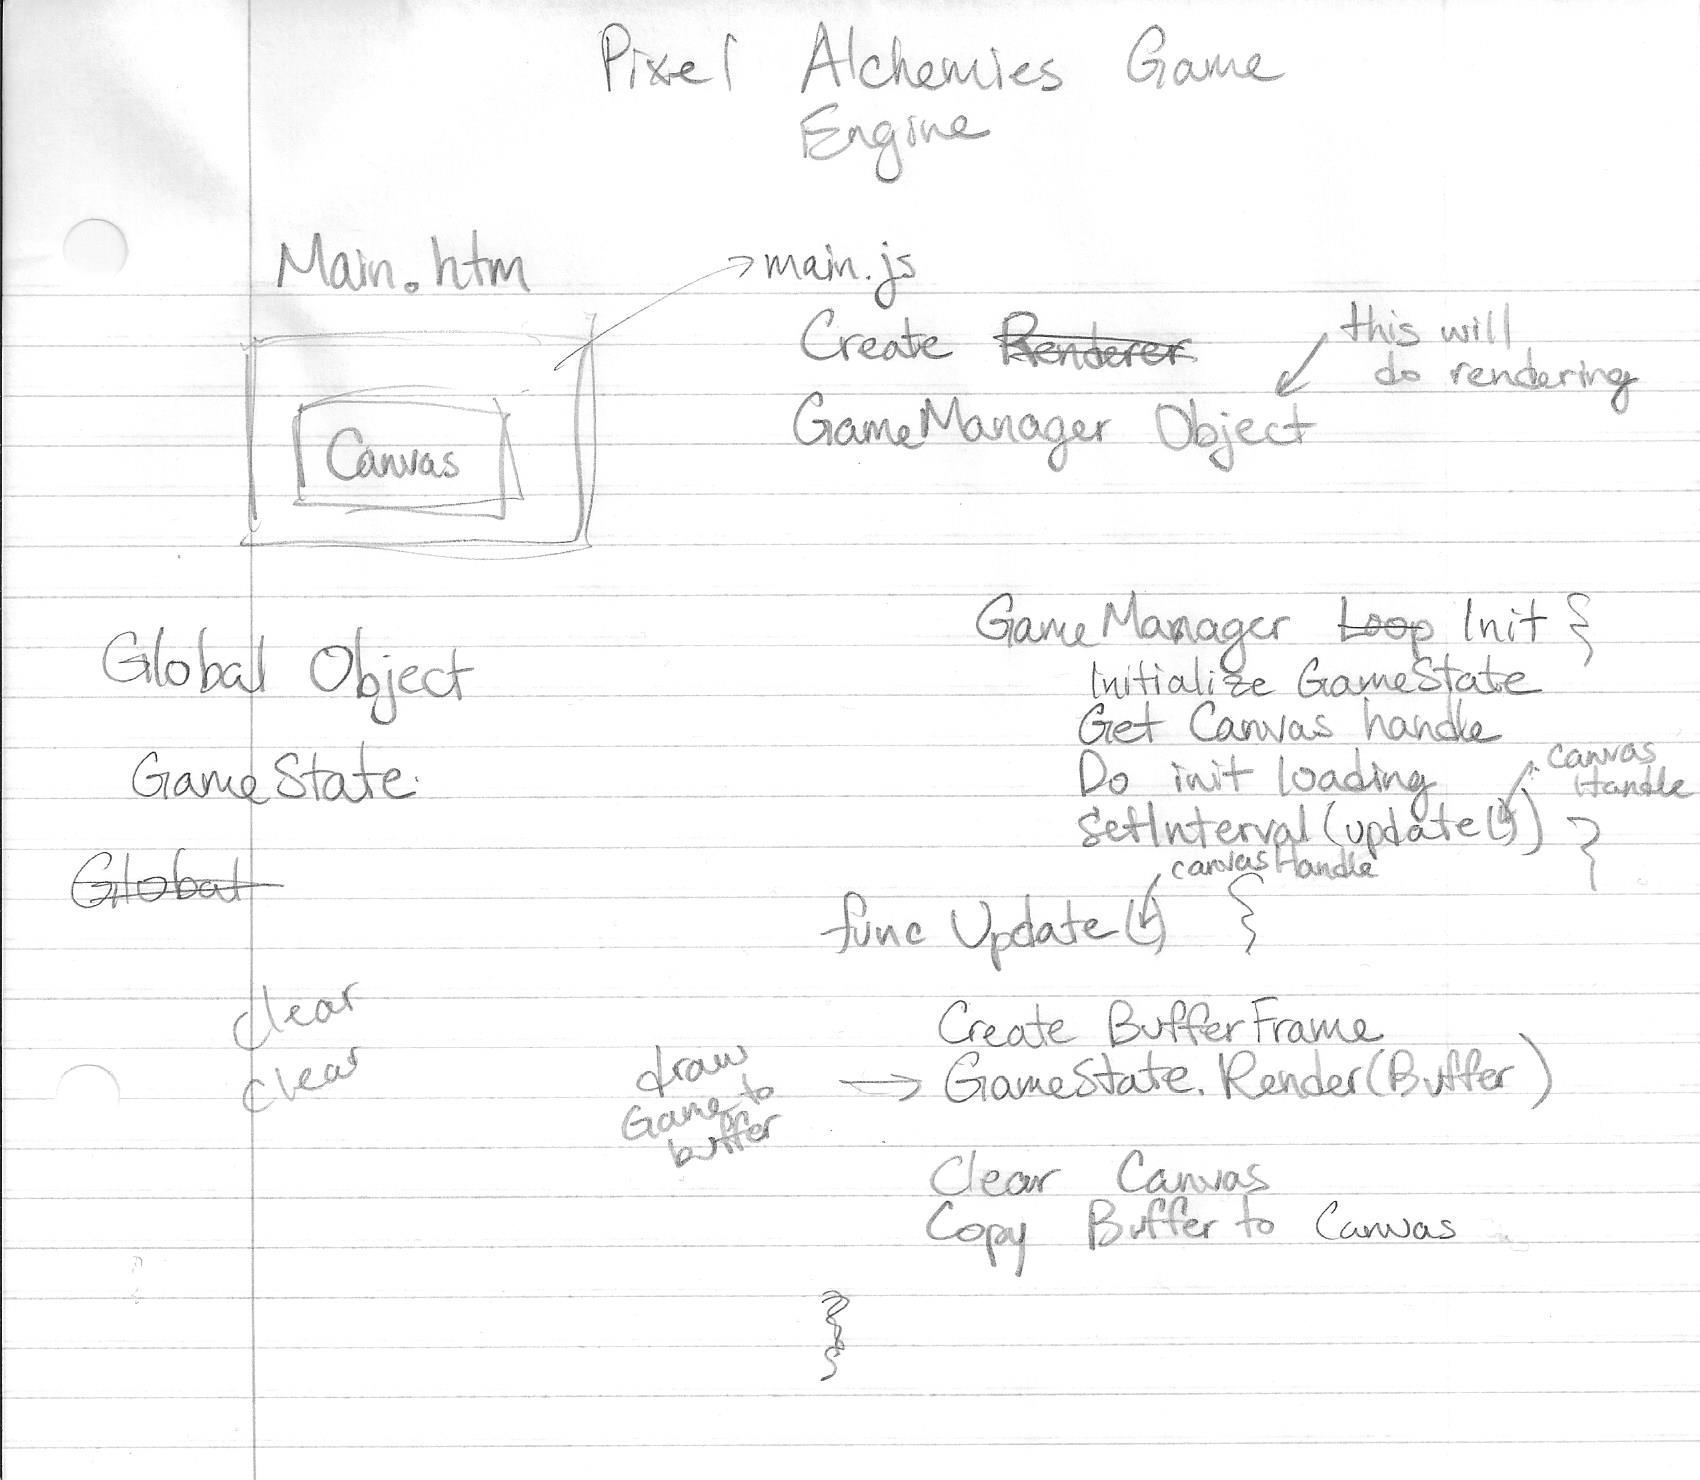 Pixel Alchemies Game
Engine
Main.htm
Canvas
main.js
Create Renderer
GameManager Object
this will
do rendering
Global Object
GameState.
Global
GameManager Loop Init {
Initialize GameState
Get Canvas handle
Do init loading
canvas
Handle
setInterval(update())
}
canvasHandle
func Update() {
clear
clear
Create BufferFrame
draw
Game to
buffer
→ GameState.Render(Buffer)
Clear Canvas
Copy Buffer to Canvas
}